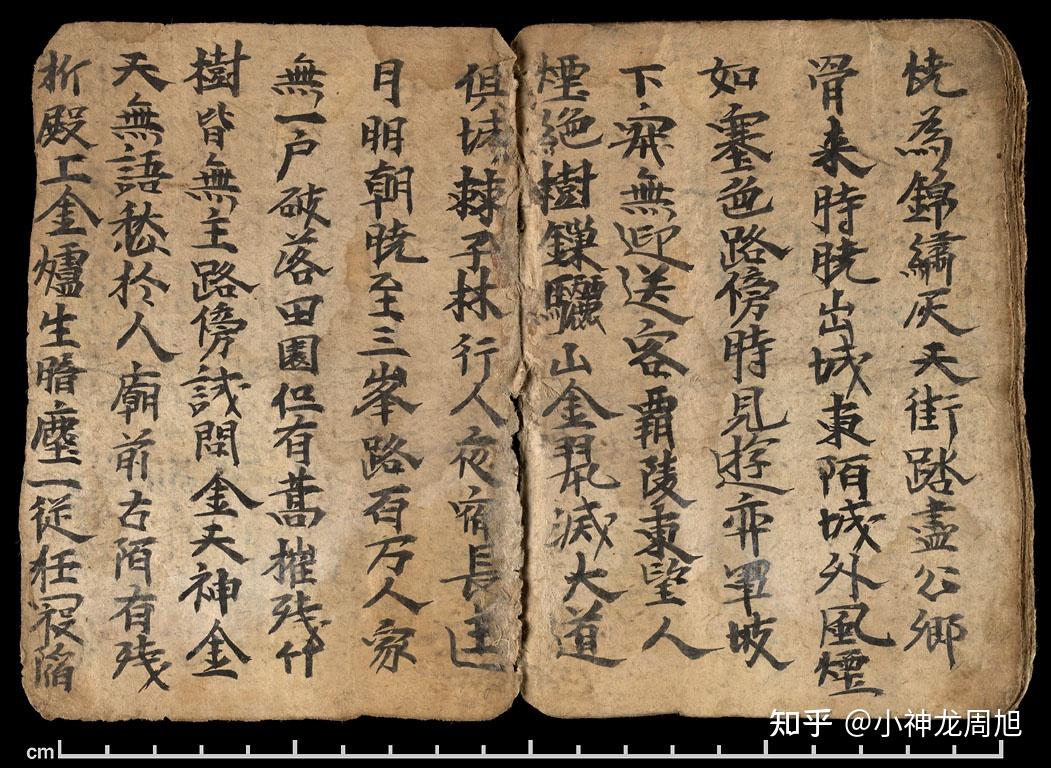 焼為錦繡灰天街踏盡公卿
骨来時曉出城東陌城外風煙
如塞色路傍時見遊弈軍坡
下寂無迎送客霸陵東望人
煙絶樹鏁驪山金翠滅大道
俱城棘子林行人夜宿長匡
月明朝曉至三峯路百万人家
無一戶破落田園但有蒿摧残竹
樹皆無主路傍試問金天神金
天無語愁扵人廟前古陌有残
枿殿上金爐生暗塵一従狂寇陷
cm
知乎 @小神龙周旭